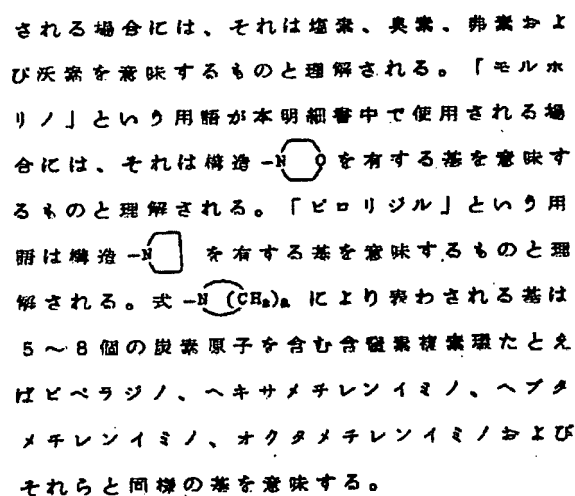 される場合には、それは塩素、臭素、弗素およ
び沃素を意味するものと理解される。「モルホ
リノ」という用語が本明細書中で使用される場
合には、それは構造 -N O を有する基を意味す
るものと理解される。「ピロリジル」という用
語は構造 -N を有する基を意味するものと理
解される。式 -N (CH₂)ₐ により表わされる基は
5〜8個の炭素原子を含む含窒素複素環たとえ
ばピペラジノ、ヘキサメチレンイミノ、ヘプタ
メチレンイミノ、オクタメチレンイミノおよび
それらと同様の基を意味する。